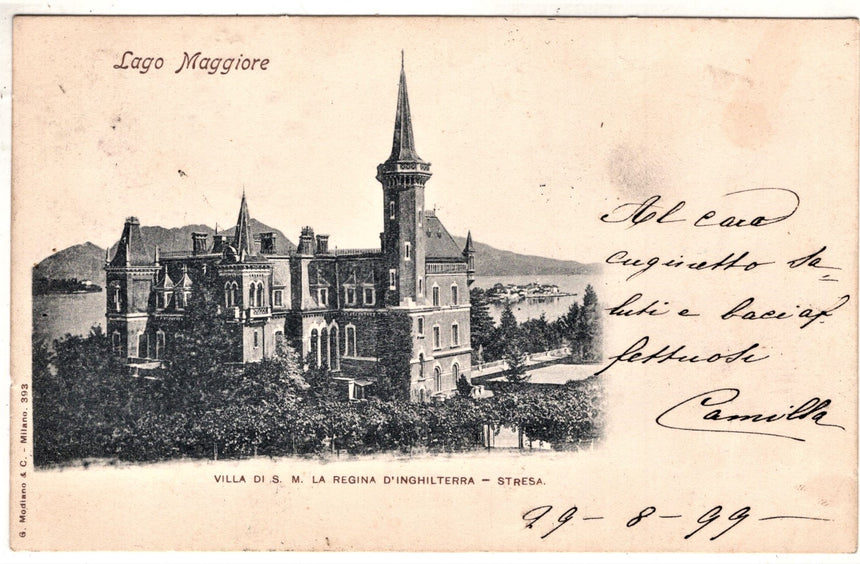 Lago Maggiore
Al caro
cuginetto sa=
luti e baci af.
fettuosi
Camilla
VILLA DI S. M. LA REGINA D'INGHILTERRA – STRESA.
29 – 8 – 99 –
G. Modiano & C. – Milano. 393